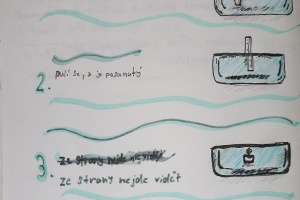 2.
půlí se, a je posunutý
3.
Ze strany nejde vidět
Ze strany nejde vidět